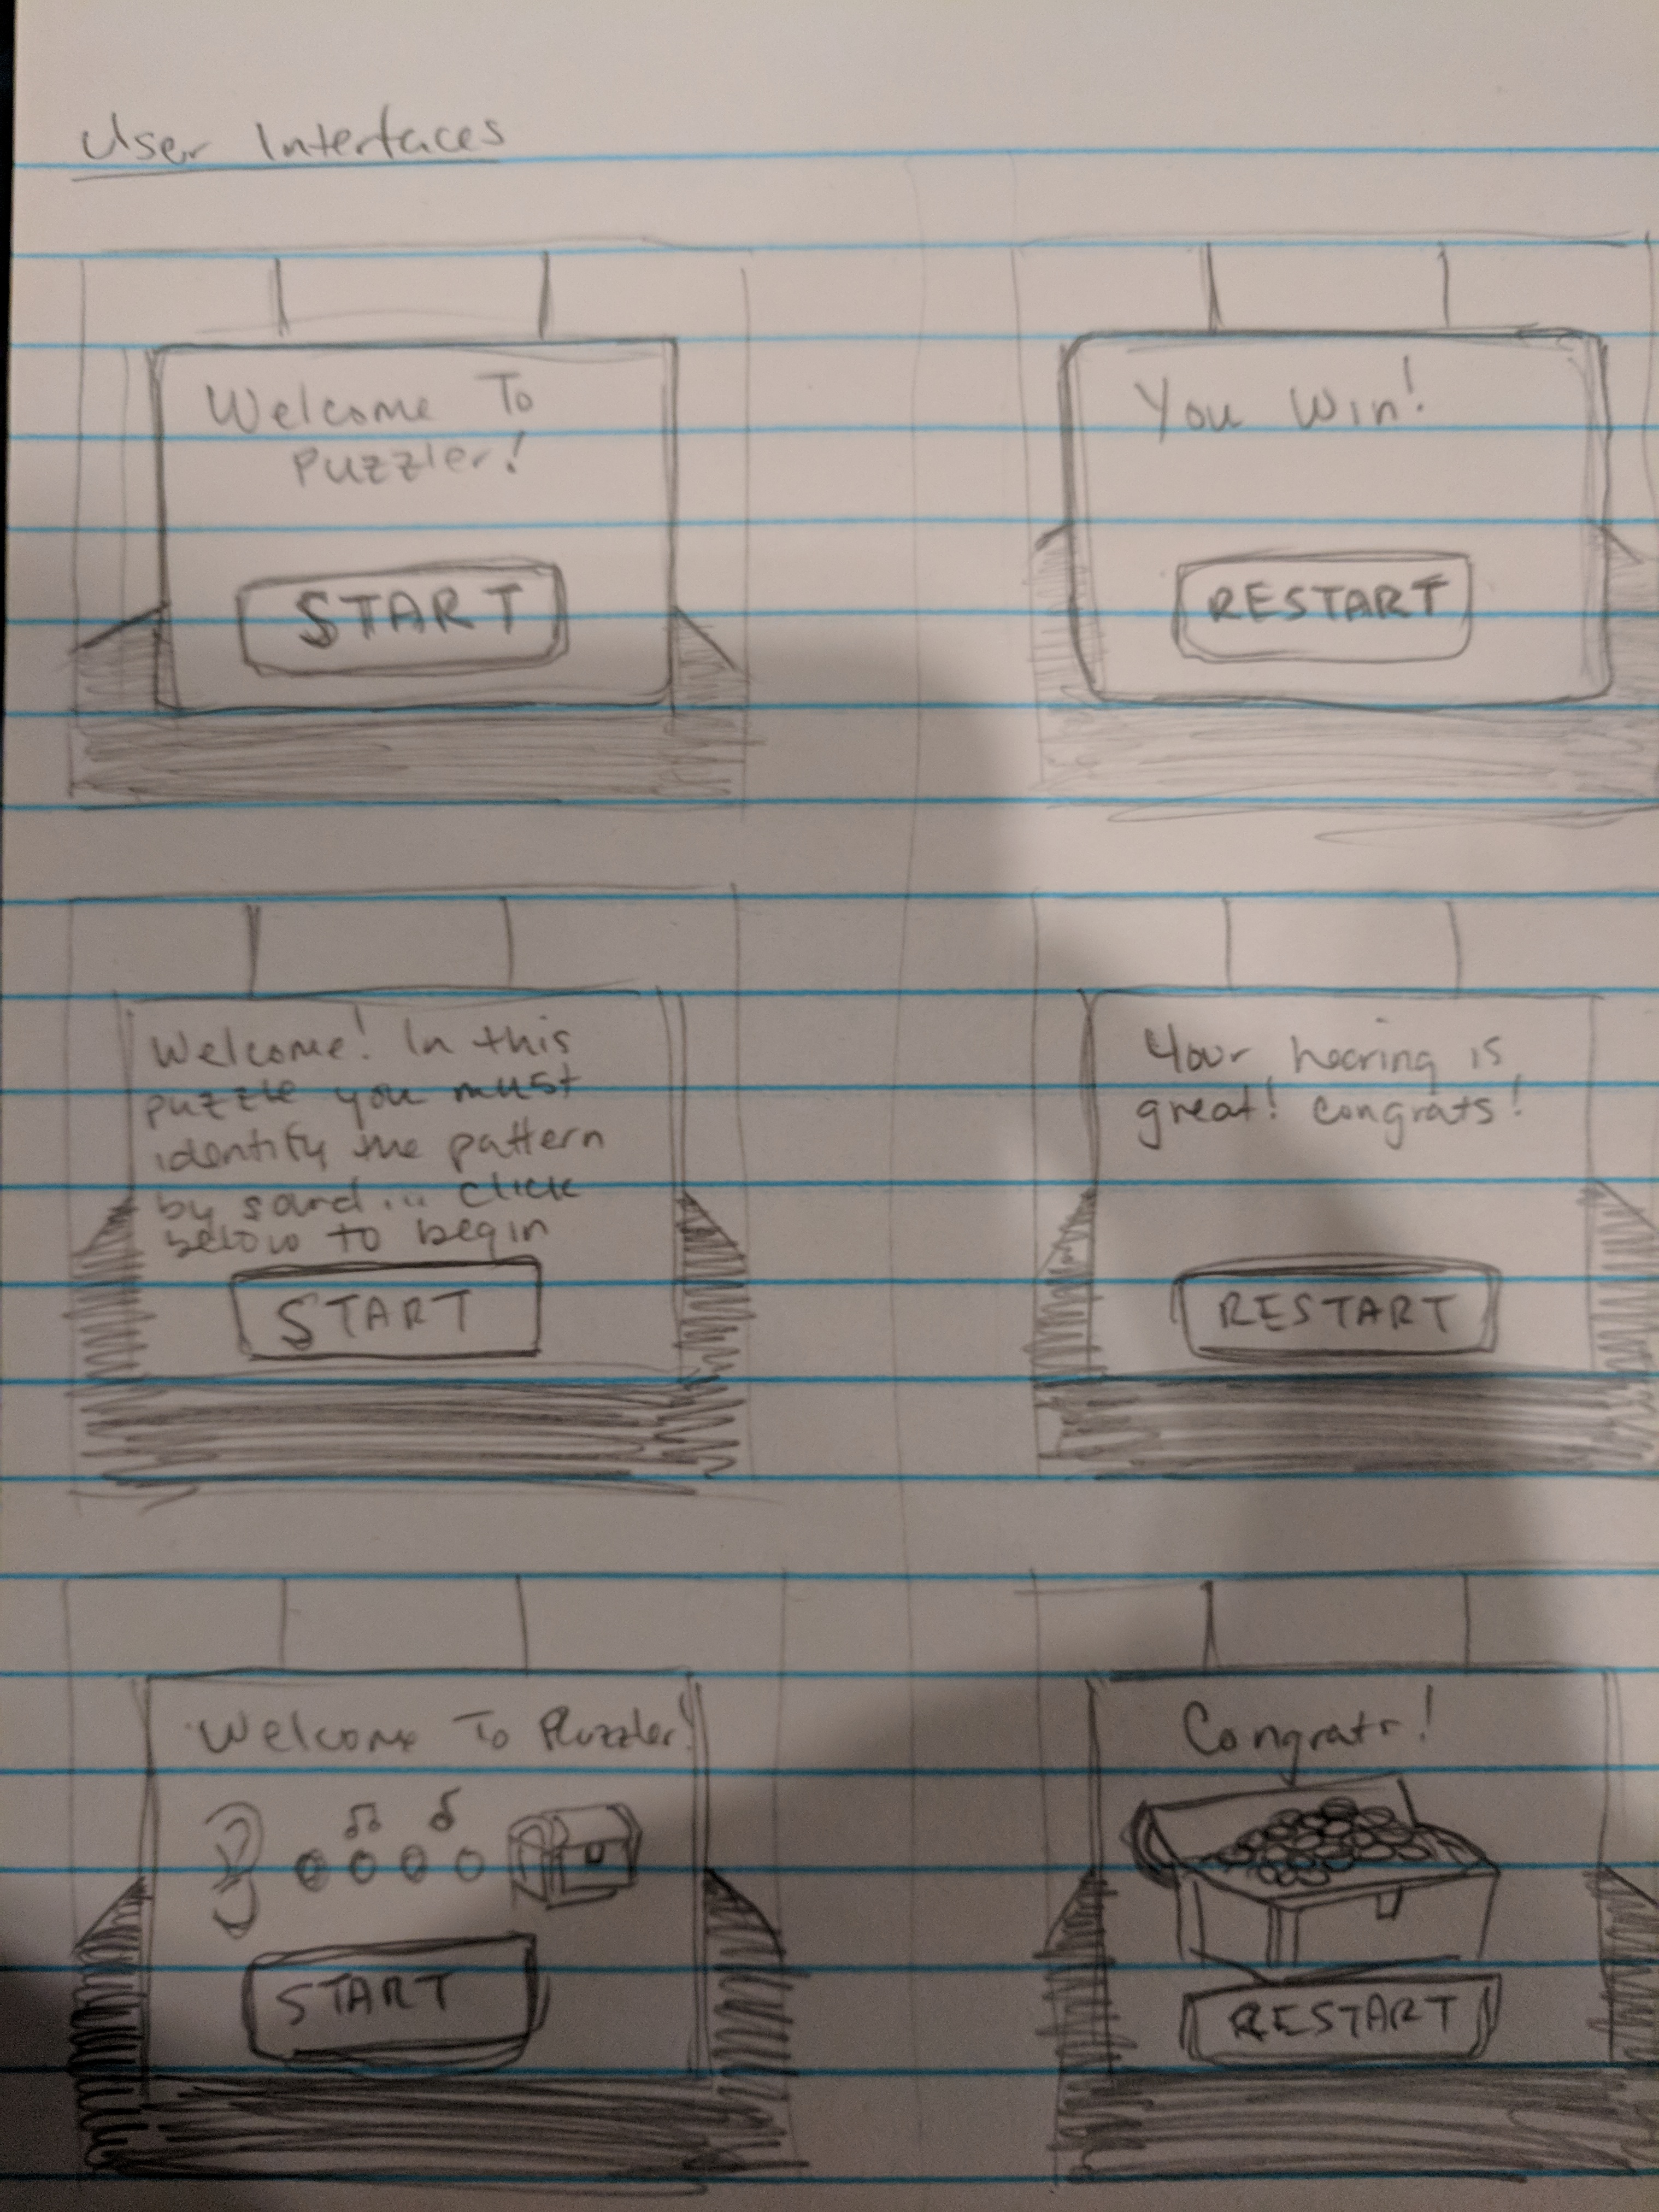 User Interfaces
Welcome To
Puzzler!
START
You Win!
RESTART
Welcome! In this
puzzle you must
identify the pattern
by sound... Click
below to begin
START
Your hearing is
great! congrats!
RESTART
Welcome To Puzzler!
START
Congrats!
RESTART